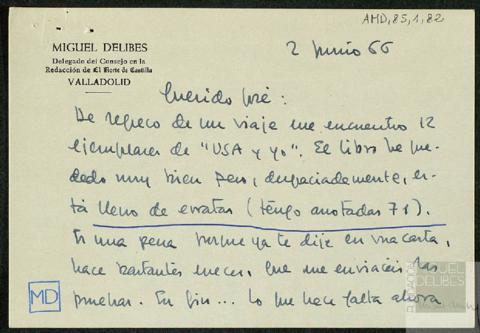 AMD,85,1,82
MIGUEL DELIBES
Delegado del Consejo en la
Redacción de El Norte de Castilla
VALLADOLID
2 Junio 66
Querido José:
De regreso de un viaje me encuentro 12
ejemplares de "USA y yo". El libro ha que-
dado muy bien pero, desgraciadamente, es-
tá lleno de erratas (tengo anotadas 71).
Es una pena porque ya te dije en una carta,
hace bastantes meses, que me enviáseis las
pruebas. En fin... Lo que hace falta ahora
MD
MIGUEL
DELIBES